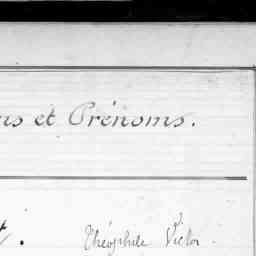 ms et Prénoms.
t. Théophile Victor